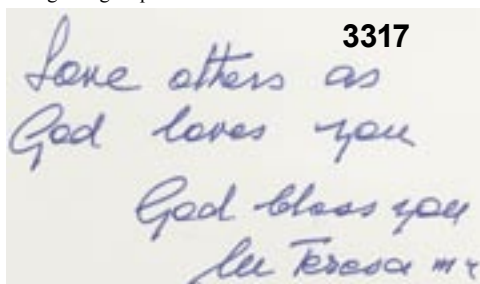 3317
Love others as
God loves you
God bless you
lu Teresa mc